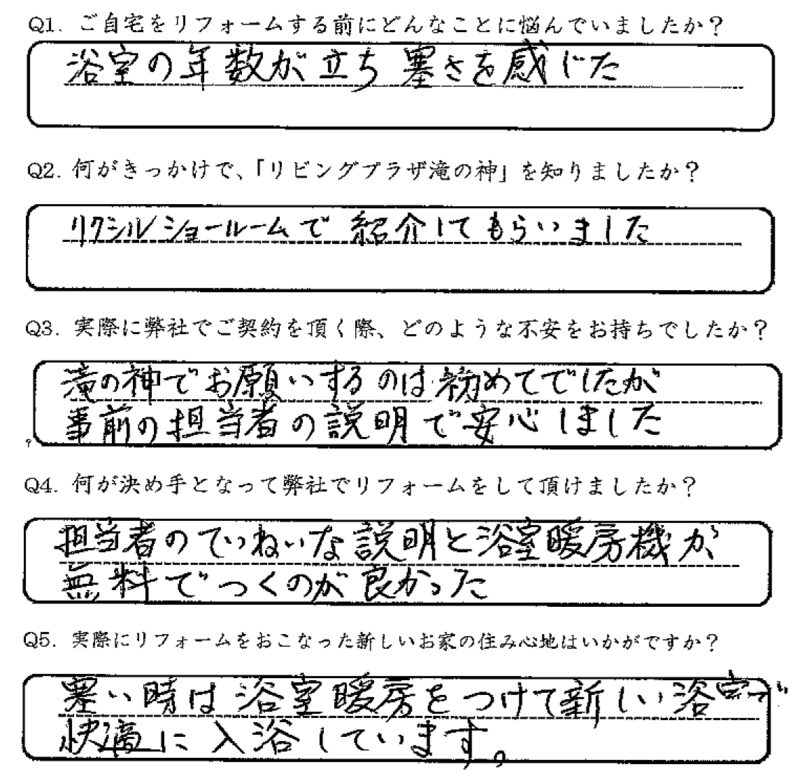 Q1. ご自宅をリフォームする前にどんなことに悩んでいましたか？
浴室の年数が立ち 寒さを感じた
Q2. 何がきっかけで、「リビングプラザ滝の神」を知りましたか？
リクシルショールームで 紹介してもらいました
Q3. 実際に弊社でご契約を頂く際、どのような不安をお持ちでしたか？
滝の神でお願いするのは初めてでしたが
事前の担当者の説明で安心しました
Q4. 何が決め手となって弊社でリフォームをして頂けましたか？
担当者のていねいな説明と浴室暖房機が
無料でつくのが良かった
Q5. 実際にリフォームをおこなった新しいお家の住み心地はいかがですか？
寒い時は浴室暖房をつけて新しい浴室で
快適に入浴しています。